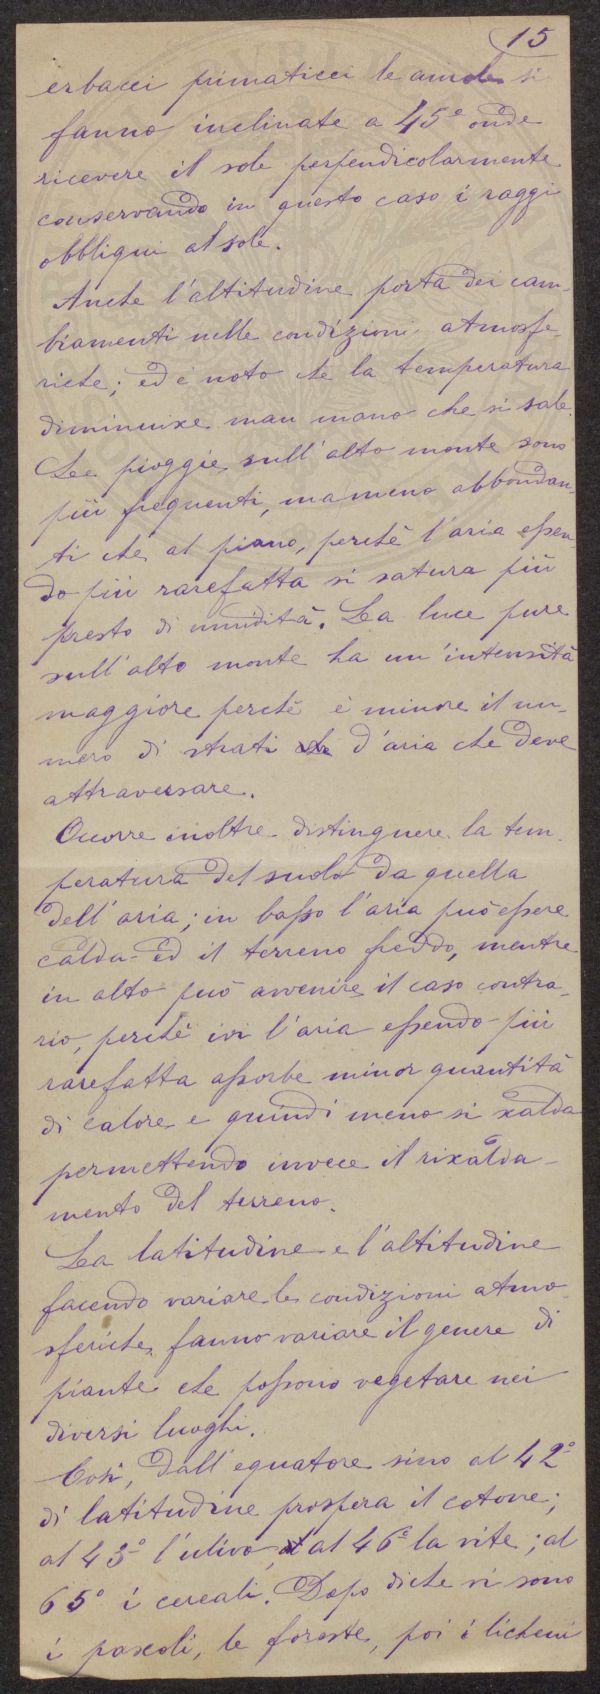 15
erbacei primaticci le aiuole si
fanno inclinate a 45° onde
ricevere il sole perpendicolarmente
conservando in questo caso i raggi
obbliqui al sole.
Anche l'altitudine porta dei cam-
biamenti nelle condizioni atmosfe-
riche; ed è noto che la temperatura
diminuisce man mano che si sale.
Le pioggie sull'alto monte sono
più frequenti, ma meno abbondan-
ti che al piano, perchè l'aria essen-
do più rarefatta si satura più
presto di umidità. La luce pure
sull'alto monte ha un'intensità
maggiore perchè è minore il nu-
mero di strati d'aria che deve
attraversare.
Occorre inoltre distinguere la tem-
peratura del suolo da quella
dell'aria; in basso l'aria può essere
calda ed il terreno freddo, mentre
in alto può avvenire il caso contra-
rio, perchè ivi l'aria essendo più
rarefatta assorbe minor quantità
di calore e quindi meno si scalda
permettendo invece il riscalda-
mento del terreno.
La latitudine e l'altitudine
facendo variare le condizioni atmo-
sferiche fanno variare il genere di
piante che possono vegetare nei
diversi luoghi.
Così, dall'equatore sino al 42°
di latitudine prospera il cotone;
al 43° l'ulivo, al 46° la vite; al
65° i cereali. Dopo di che vi sono
i pascoli, le foreste, poi i licheni